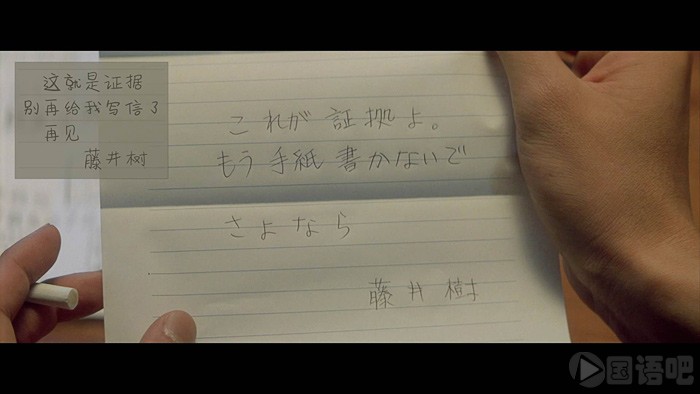 这就是证据
别再给我写信了
再见
藤井树
これが証拠よ。
もう手紙書かないで
さよなら
藤井樹
国语吧